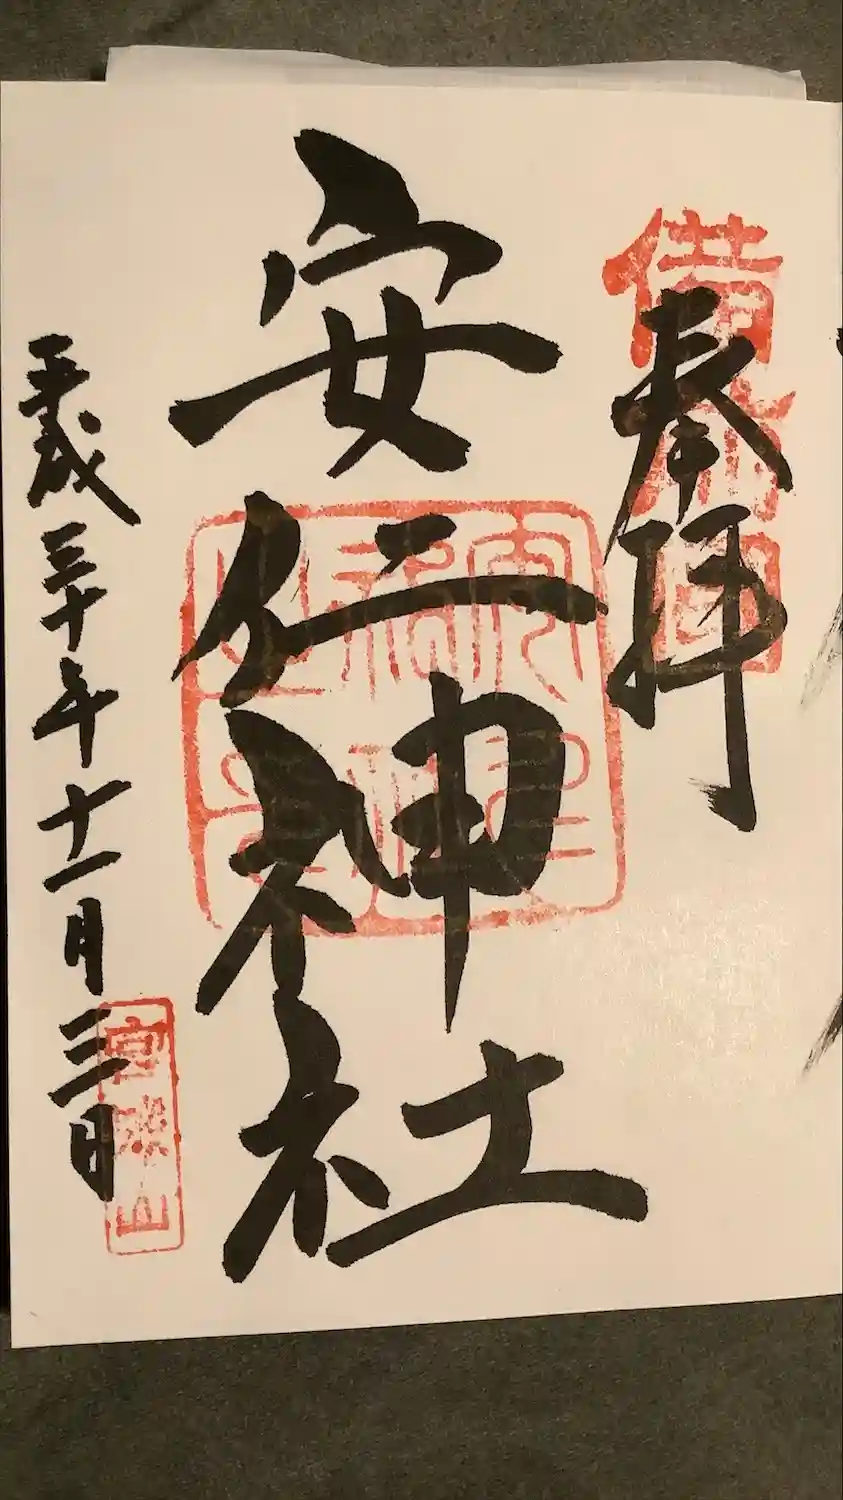 備前国
奉拝
安仁神社
平成三十年十一月三日